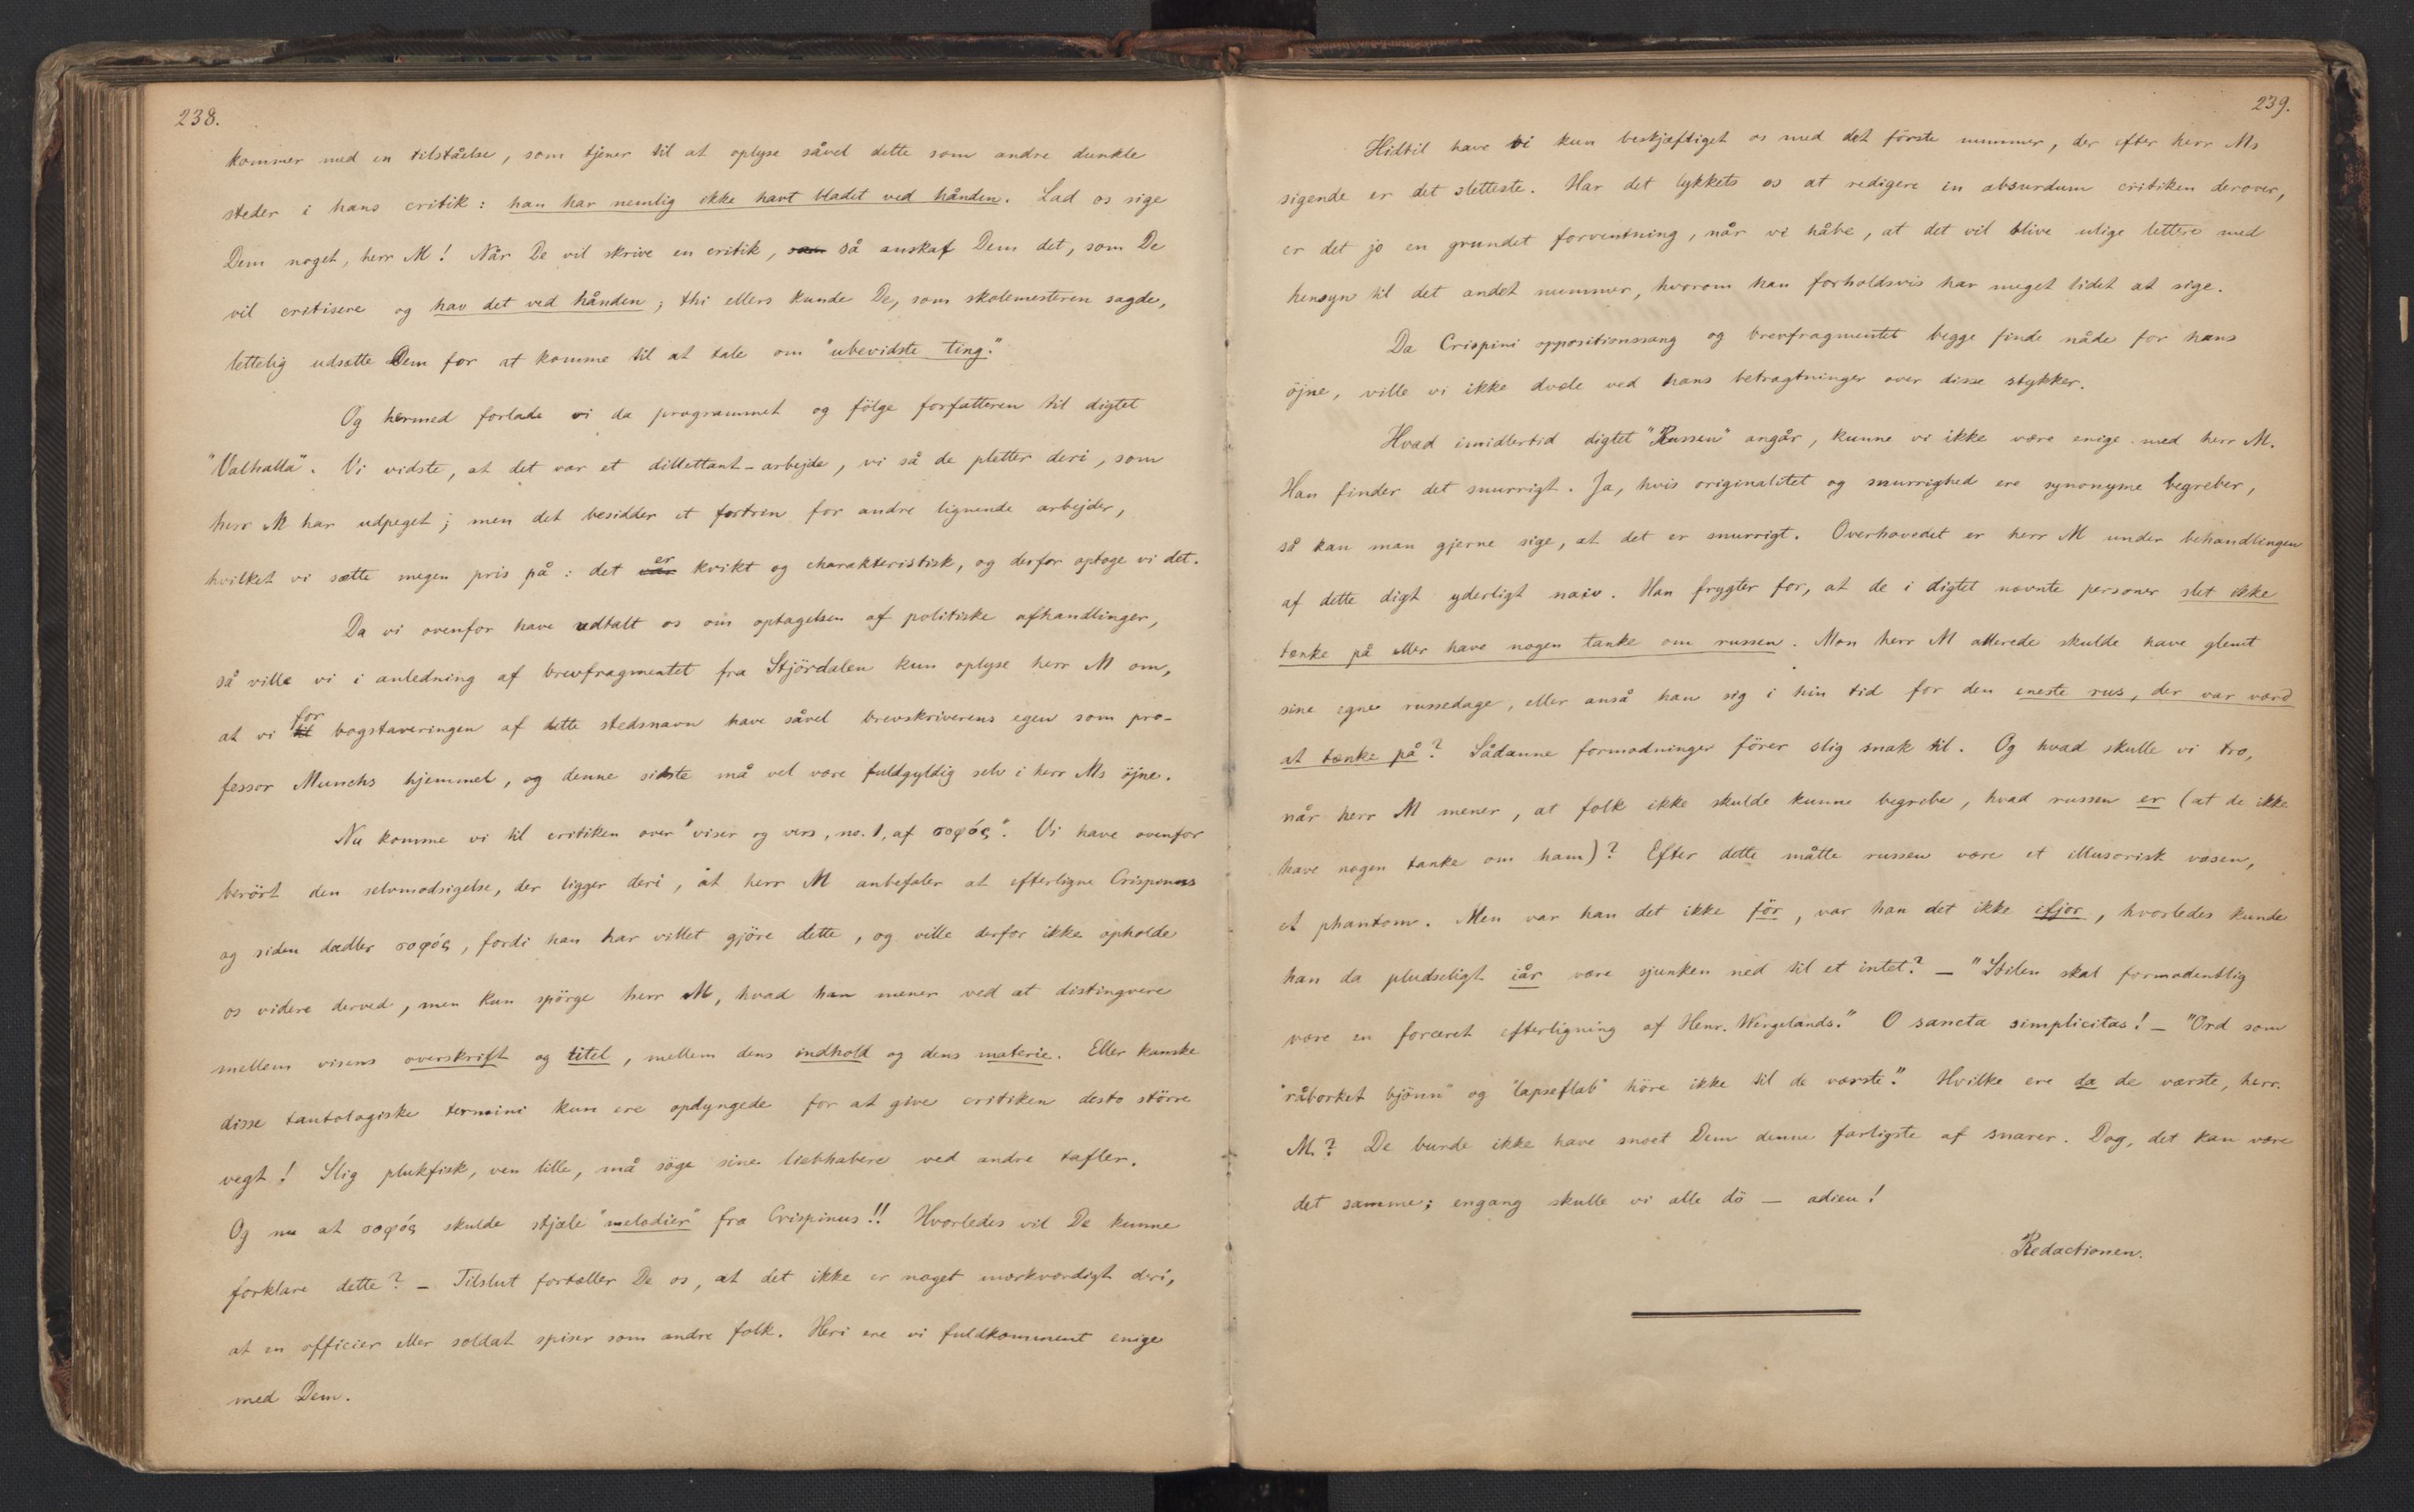 238.
kommer med en tilståelse, som tjener til at oplyse såvel dette som andre dunkle
steder i hans critik: han har nemlig ikke havt bladet ved hånden. Lad os sige
Dem noget, herr M! Når De vil skrive en critik, så anskaf Dem det, som De
vil critisere og hav det ved hånden; thi ellers kunde De, som skolemesteren sagde,
lettelig udsætte Dem for at komme til at tale om "ubevidste ting."
Og hermed forlade vi da programmet og fölge forfatteren til digtet
"Valhalla". Vi vidste, at det var et dillettant-arbejde, vi så de pletter deri, som
herr M har udpeget; men det besidder et fortrin for andre lignende arbejder,
hvilket vi sætte megen pris på: det var er kvikt og charakteristisk, og derfor optoge vi det.
Da vi ovenfor have udtalt os om optagelsen af politiske afhandlinger,
så ville vi i anledning af brevfragmentet fra Stjördalen kun oplyse herr M om,
at vi til for bogstaveringen af dette stedsnavn have såvel brevskriverens egen som pro-
fessor Munchs hjemmel, og denne sidste må vel være fuldgyldig selv i herr Ms öjne.
Nu komme vi til critiken over "viser og vers, no. 1, af σοφός". Vi have ovenfor
berört den selvmodsigelse, der ligger deri, at herr M anbefaler at efterligne Crispinus
og siden dadler σοφός, fordi han har villet gjöre dette, og ville derfor ikke opholde
os videre derved, men kun spörge herr M, hvad han mener ved at distingvere
mellem visens overskrift og titel, mellem dens indhold og dens materie. Eller kanske
disse tautologiske termini kun ere opdyngede for at give critiken desto större
vegt! Slig plukfisk, ven lille, må söge sine liebhabere ved andre tafler.
Og nu at σοφός skulde stjæle "melodier" fra Crispinus!! Hvorledes vil De kunne
forklare dette? – Tilslut fortæller De os, at det ikke er noget mærkværdigt deri,
at en officier eller soldat spiser som andre folk. Heri ere vi fuldkomment enige
med Dem.
239.
Hidtil have vi kun beskjæftiget os med det förste nummer, der efter herr Ms
sigende er det sletteste. Har det lykkets os at redigere in absurdum critiken derover,
er det jo en grundet forventning, når vi håbe, at det vil blive ulige lettere med
hensyn til det andet nummer, hvorom han forholdsvis har meget lidet at sige.
Da Crispini oppositionssang og brevfragmentet begge finde nåde for hans
öjne, ville vi ikke dvæle ved hans betragtninger over disse stykker.
Hvad imidlertid digtet "Russen" angår, kunne vi ikke være enige med herr M.
Han finder det snurrigt. Ja, hvis originalitet og snurrighed ere synonyme begreber,
så kan man gjerne sige, at det er snurrigt. Overhovedet er herr M under behandlingen
af dette digt yderligt naiv. Han frygter for, at de i digtet nævnte personer slet ikke
tænke på eller have nogen tanke om russen. Mon herr M allerede skulde have glemt
sine egne russedage, eller anså han sig i hin tid for den eneste rus, der var værd
at tænke på? Sådanne formodninger förer slig snak til. Og hvad skulle vi tro,
når herr M mener, at folk ikke skulde kunne begribe, hvad russen er (at de ikke
have nogen tanke om ham)? Efter dette måtte russen være et illusorisk væsen,
et phantom. Men var han det ikke för, var han det ikke ifjor, hvorledes kunde
han da pludseligt iår være sjunken ned til et intet? – "Stilen skal formodentlig
være en forceret efterligning af Henr. Wergelands." O sancta simplicitas! – "Ord som
"råbarket björnn" og "lapseflab" höre ikke til de værste." Hvilke ere da de værste, herr
M.? De burde ikke have snoet Dem denne farligste af snarer. Dog, det kan være
det samme; engang skulle vi alle dö – adieu!
Redactionen.